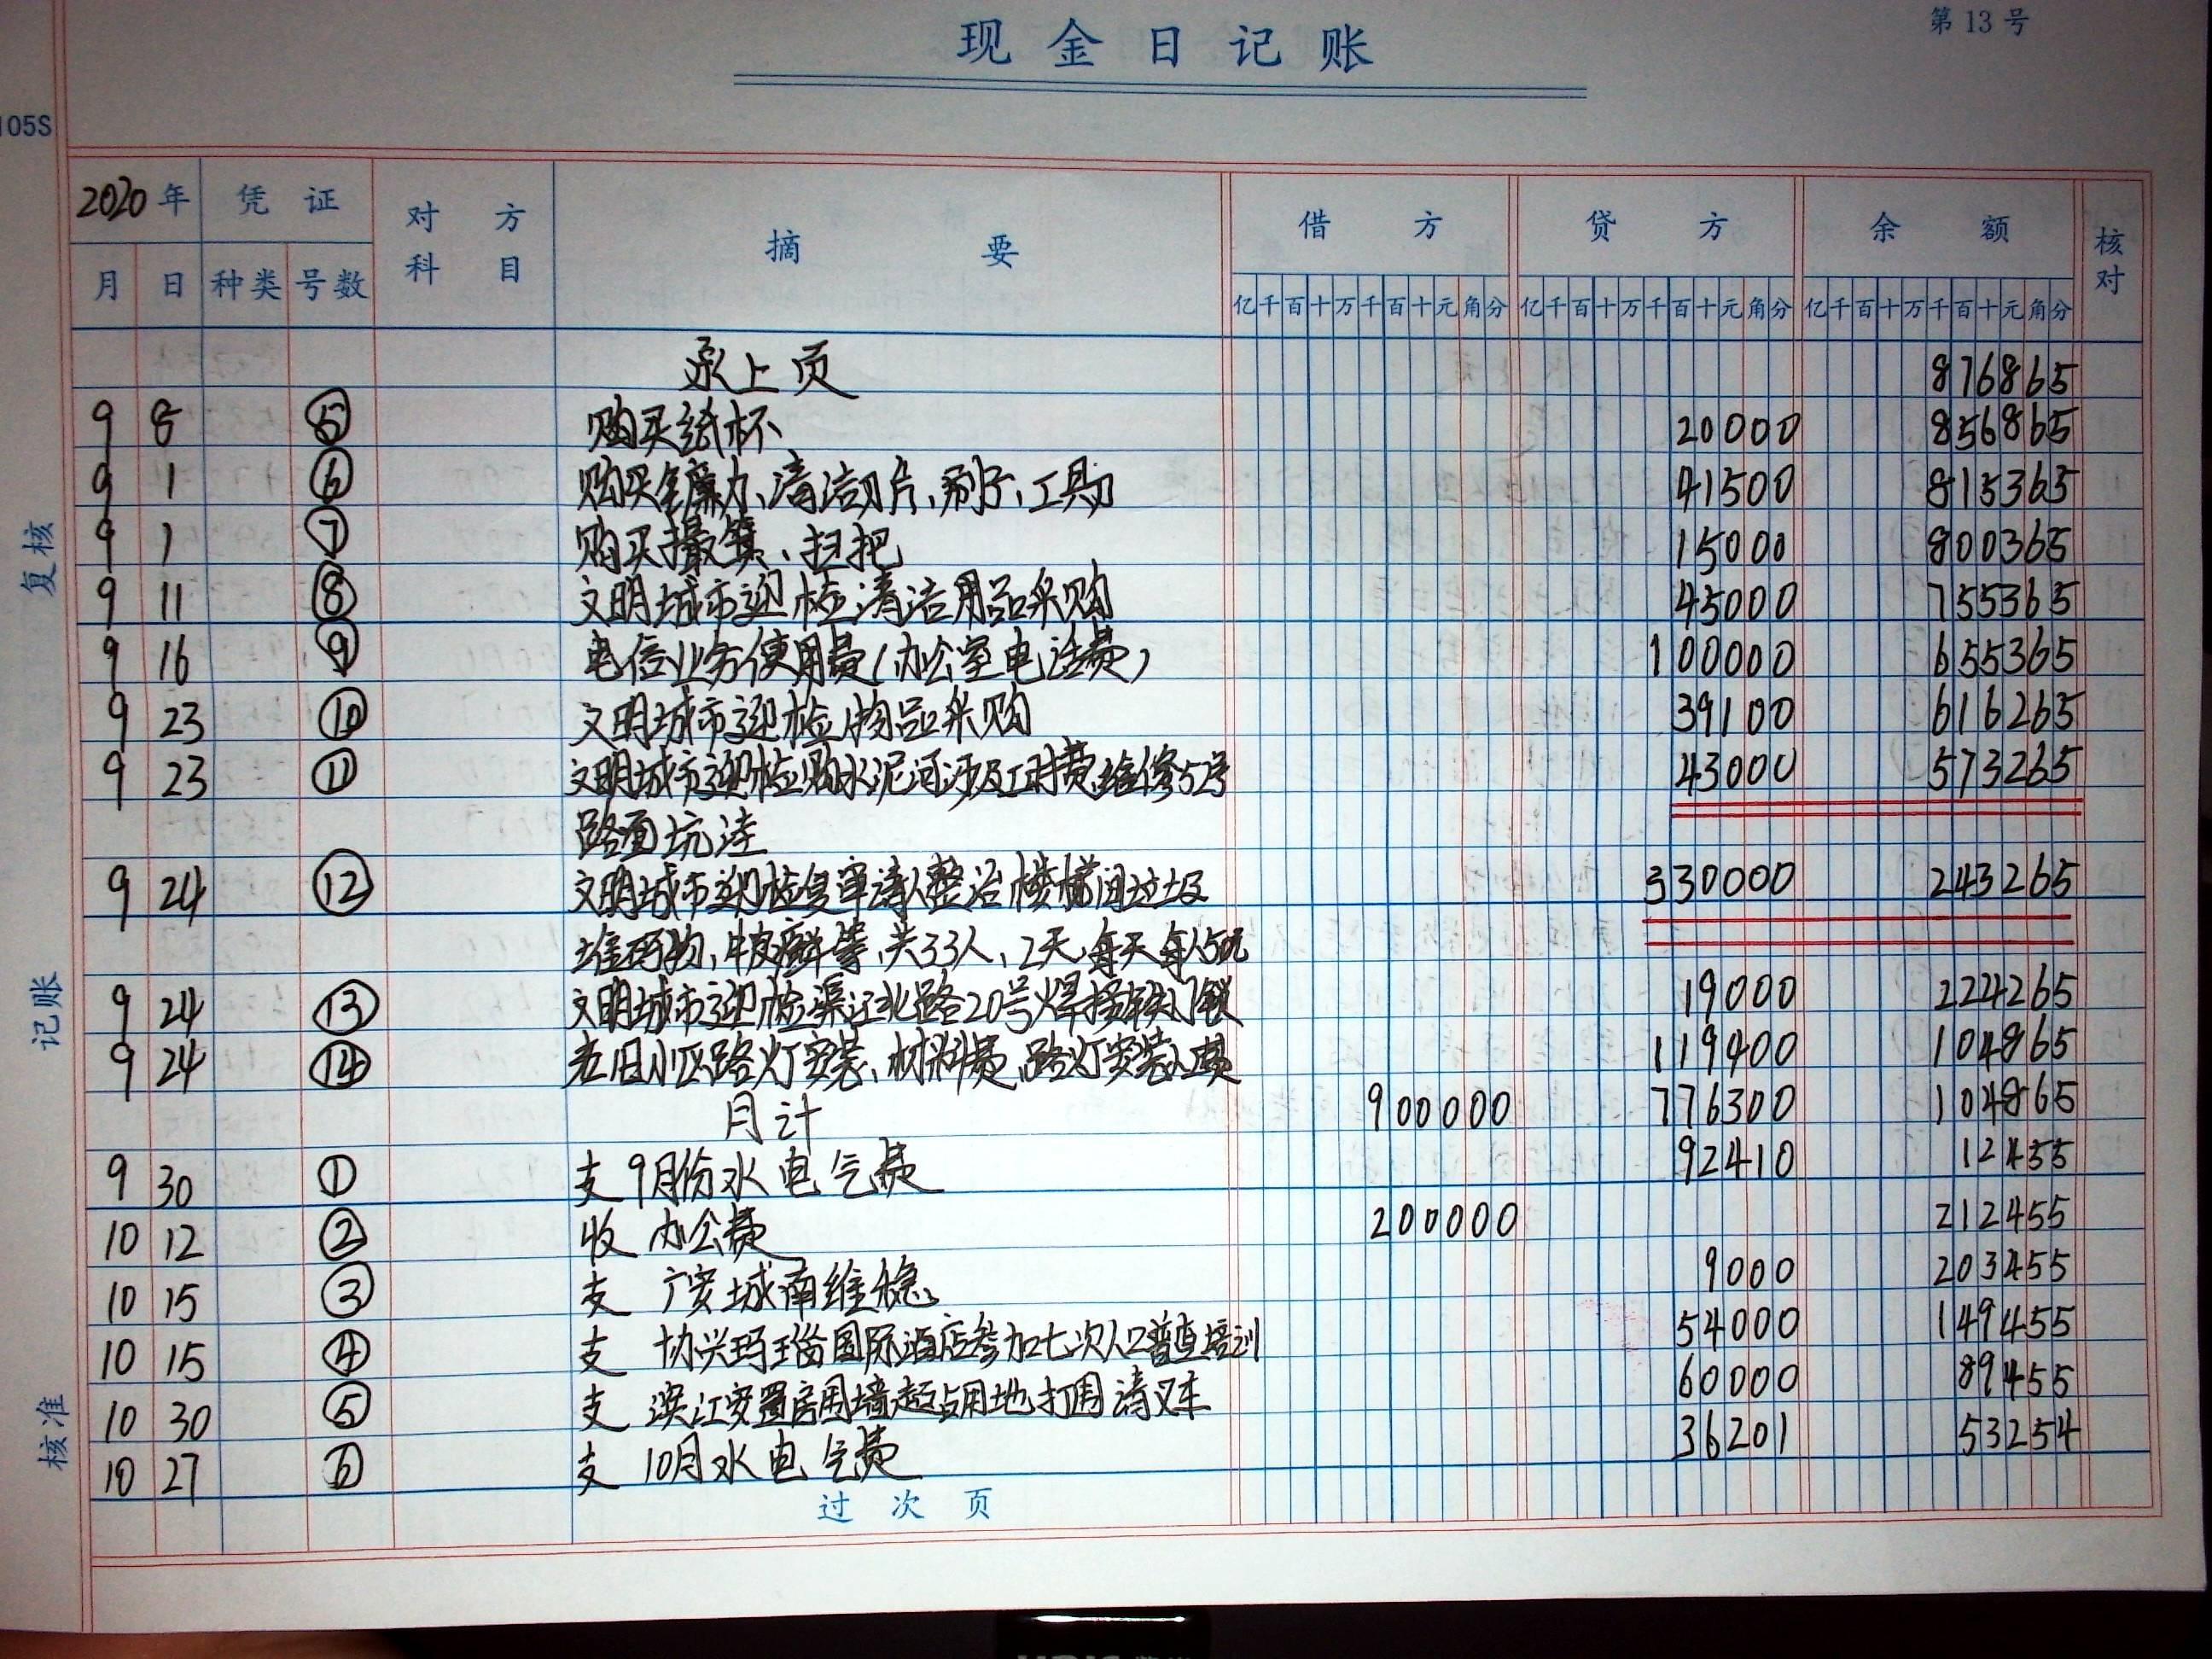 现金日记账
第 13 号
105S
2020年 凭证 对方科目 摘要 借方 贷方 余额 核对
月 日 种类 号数 亿千百十万千百十元角分 亿千百十万千百十元角分 亿千百十万千百十元角分
承上页 876865
9 8 ⑤ 购买纸杯 20000 856865
9 1 ⑥ 购买镰刀、清洁刀片、刷子、工具刀 41500 815365
9 1 ⑦ 购买撮箕、扫把 15000 800365
9 11 ⑧ 文明城市迎检清洁用品采购 45000 755365
9 16 ⑨ 电信业务使用费(办公室电话费) 100000 655365
9 23 ⑩ 文明城市迎检物品采购 39100 616265
9 23 ⑪ 文明城市迎检购水泥河沙及工时费维修52号 43000 573265
路面坑洼
9 24 ⑫ 文明城市迎检复审请人整治楼梯间垃圾 330000 243265
堆码物、牛皮癣等、共33人、2天、每天每人50元
9 24 ⑬ 文明城市迎检渠江北路20号焊接铁门锁 19000 224265
9 24 ⑭ 老旧小区路灯安装、材料费、路灯安装人工费 119400 104865
月计 900000 776300 104865
9 30 ① 支 9月份水电气费 92410 12455
10 12 ② 收 办公费 200000 212455
10 15 ③ 支 广安城南维稳 9000 203455
10 15 ④ 支 协兴玛瑙国际酒店参加七次人口普查培训 54000 149455
10 30 ⑤ 支 滨江安置房围墙超占用地打围请叉车 60000 89455
10 27 ⑥ 支 10月水电气费 36201 53254
过次页
复核
记账
核准